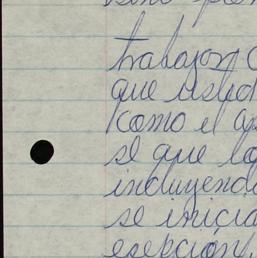 trabajon
que usted
como el
sé que lo
incluyend
se inicia
esepción,